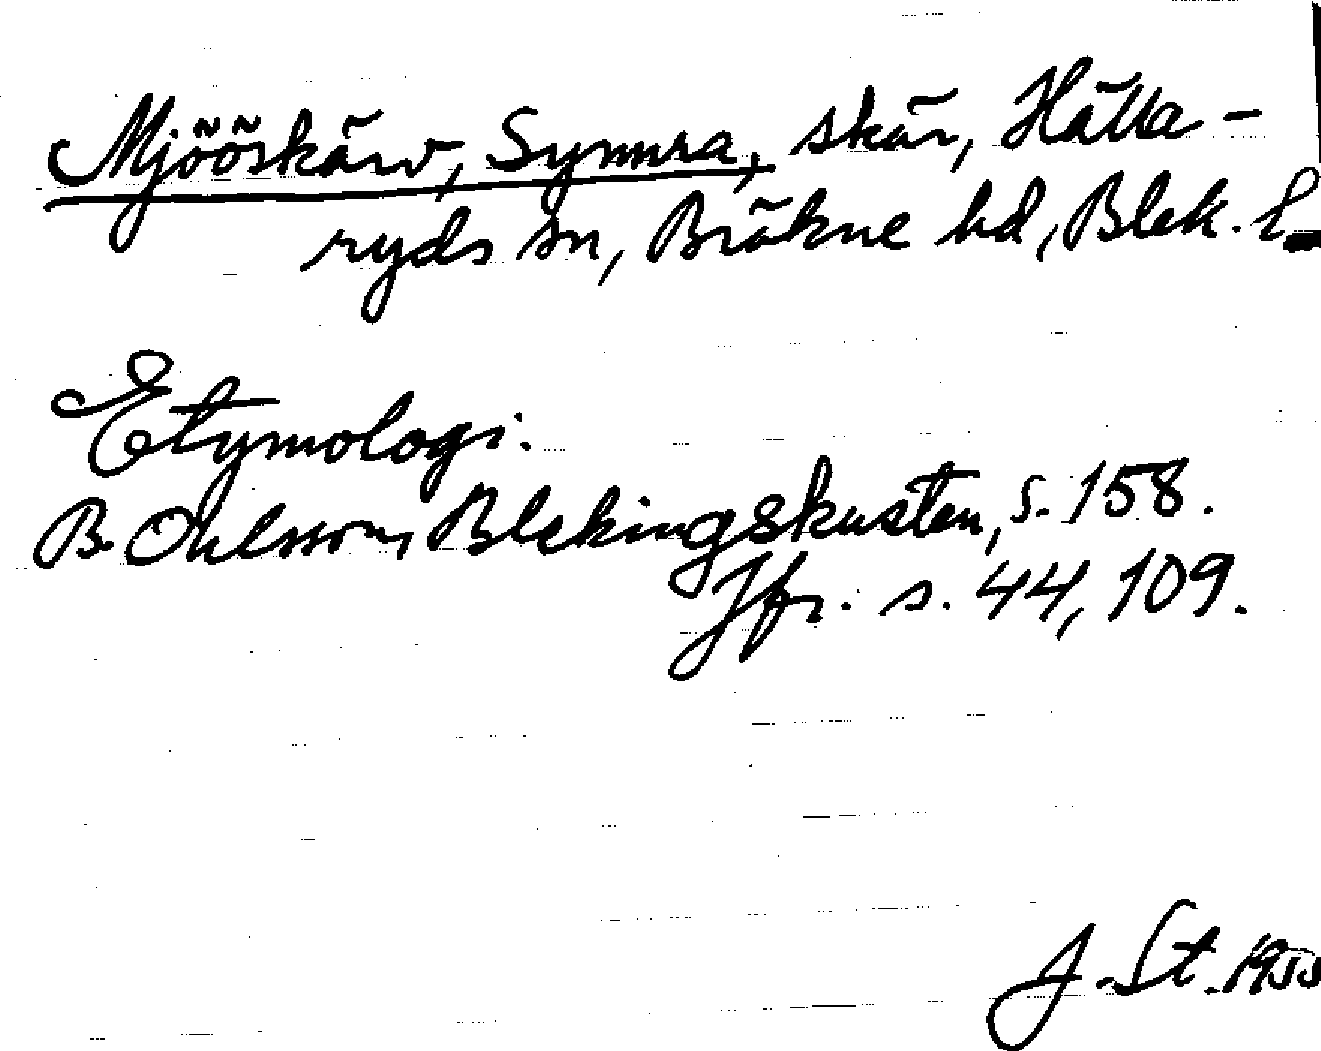 Mjööskärv, Synnra, skär, Hälla-
ryds sn, Bräkne hd, Blek. l.
Etymologi:
B. Ohlsson, Blekingskusten, s. 158.
Jfr. s. 44, 109.
J. St. 1955